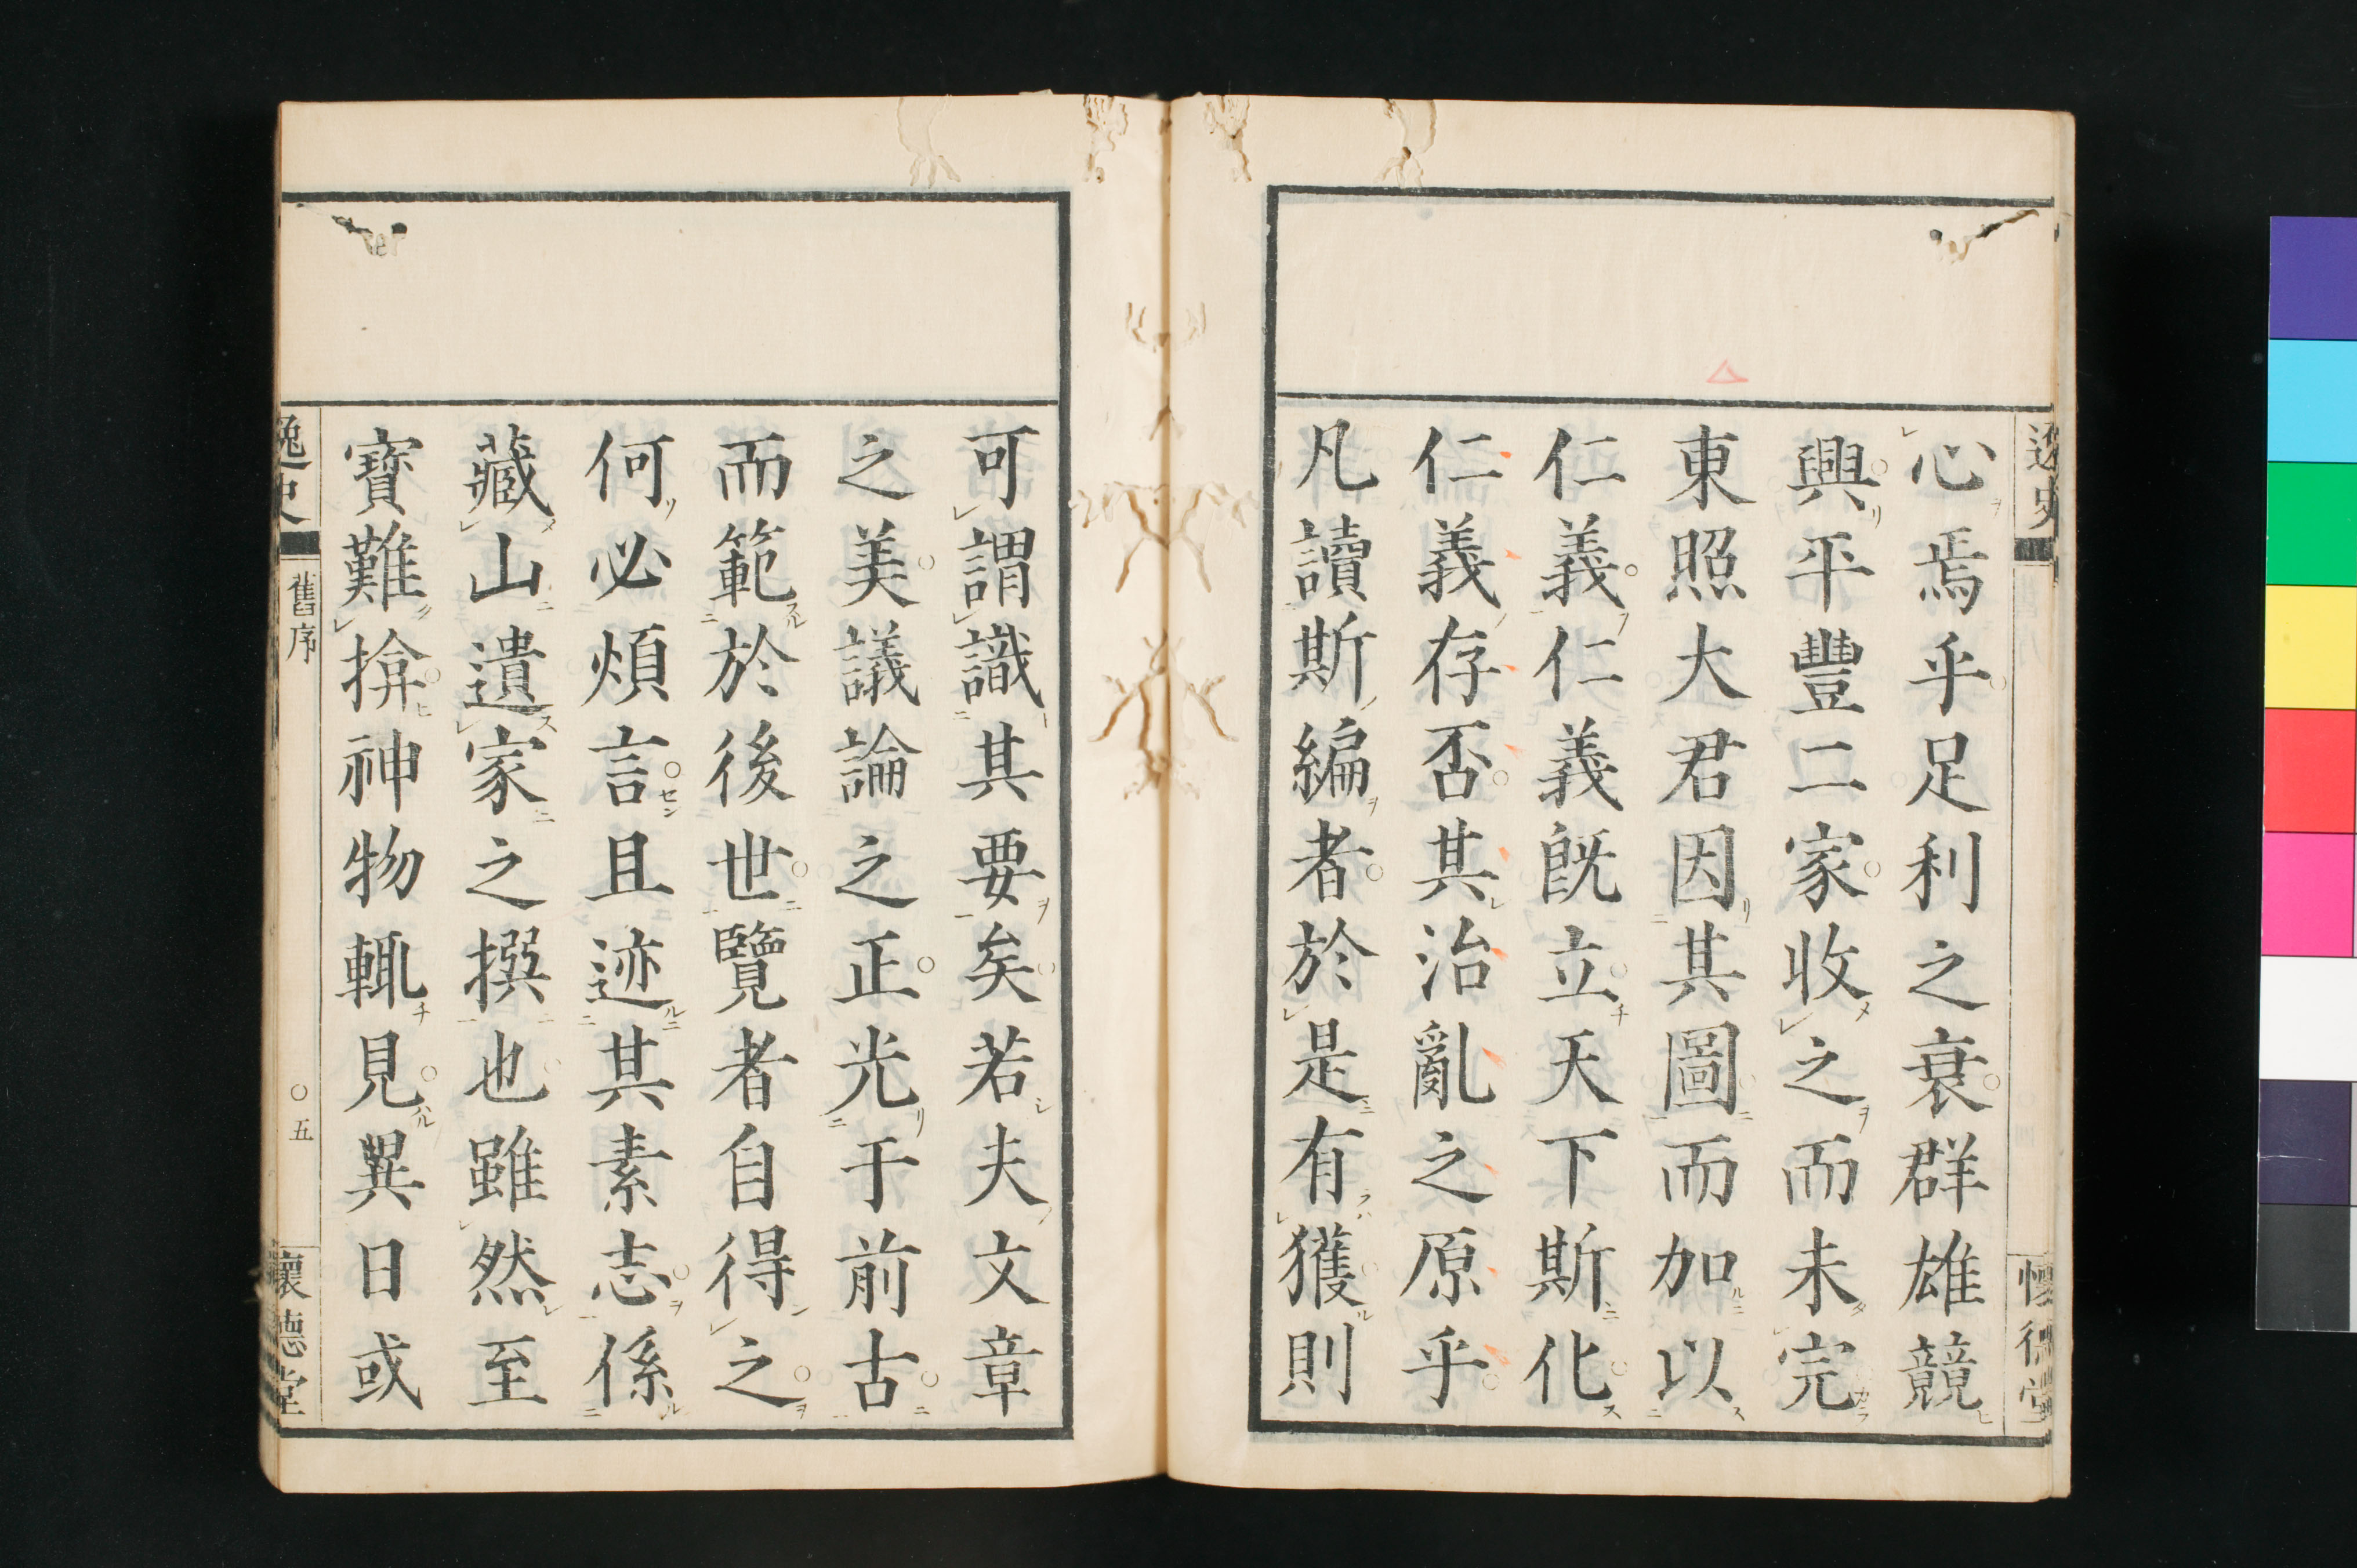 逸史
懷德堂
心焉乎足利之衰群雄競
興平豐二家收之而未完
東照大君因其圖而加以
仁義仁義既立天下斯化
仁義存否其治亂之原乎
凡讀斯編者於是有獲則
可謂識其要矣若夫文章
之美議論之正光于前古
而範於後世覽者自得之
何必煩言且迹其素志係
藏山遺家之撰也雖然至
寶難揜神物輒見異日或
逸史
舊序
〇五
懷德堂